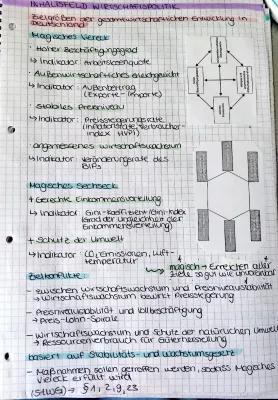 INHALTSFELD WIRTSCHAFTSPOLITIK
Zielgrößen der gesamtwirtschaftlichen Entwicklung in
Deutschland
Magisches Viereck
· Hoher Beschäftigungsgrad
↳ Indikator: Arbeitslosenquote
· Außenwirtschaftliches Gleichgewicht
↳ Indikator: Außenbeitrag
(Exporte - Importe)
· Stabiles Preisniveau
↳ Indikator: Preissteigerungsrate
(Inflationsrate, Verbraucher-
index HVPI)
· angemessenes Wirtschaftswachstum
↳ Indikator: Veränderungsrate des
BIPs
Magisches Sechseck
+ Gerechte Einkommensverteilung
↳ Indikator: Gini-Koeffizient/Gini-Index
(Grad der Ungleichheit der
Einkommensverteilung)
+ Schutz der Umwelt
↳ Indikator: CO₂ Emissionen, Luft-
temperatur
magisch → Erreichen aller
Ziele so gut wie unmöglich
Zielkonflikte
- zwischen Wirtschaftswachstum und Preisniveaustabilität
→ Wirtschaftswachstum bewirkt Preissteigerung
- Preisniveaustabilität und Vollbeschäftigung
→ Preis-Lohn-Spirale
- Wirtschaftswachstum und Schutz der natürlichen Umwelt
→ Ressourcenverbrauch für Güterherstellung
basiert auf Stabilitäts- und Wachstumsgesetz
- Maßnahmen sollen getroffen werden, sodass Magisches
Viereck erfüllt wird
(StWG) → § 1, 2, 9, 23